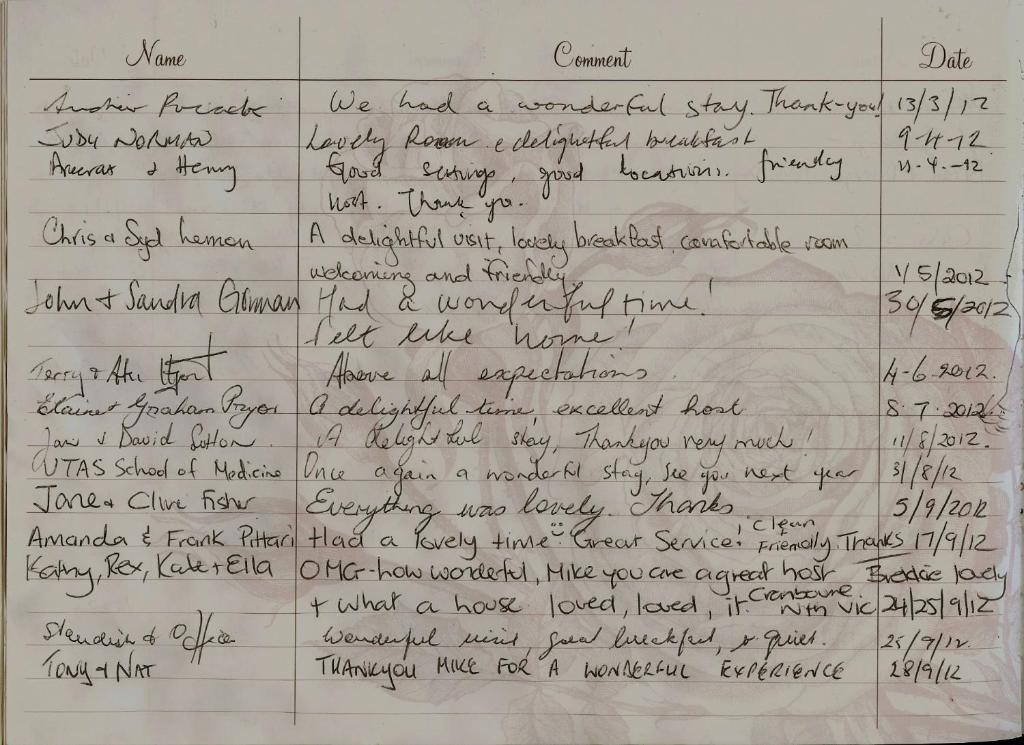 Name Comment Date
We had a wonderful stay. Thank-you! 13/3/12
JUDY NORMAN Lovely Room & delightful breakfast 9-4-12
& Henry Good settings, good locations. friendly 11-4-12
host. Thank you.
Chris & Syd Lemon A delightful visit, lovely breakfast comfortable room
welcoming and friendly 1/5/2012
John + Sandra Gorman Had a wonderful time! 30/5/2012
Felt like home!
Terry & Above all expectations 4-6-2012.
Elaine & Graham Pryor A delightful time, excellent host 8.7.2012
Jan & David Sutton. A delightful stay, Thankyou very much! 11/8/2012.
UTAS School of Medicine Once again a wonderful stay, see you next year 31/8/12
Jane & Clive Fisher Everything was lovely. Thanks 5/9/2012
Amanda & Frank Pittari Had a lovely time. Great Service, Clean Friendly. Thanks 17/9/12
Kathy, Rex, Kate + Ella OMG-how wonderful, Mike you are a great host Breckie lovely
+ what a house loved, loved, it. Cranbourne Nth Vic 24/25/9/12
Wonderful visit, great breakfast, & quiet. 25/9/12.
TONY & NAT THANKYOU MIKE FOR A WONDERFUL EXPERIENCE 28/9/12